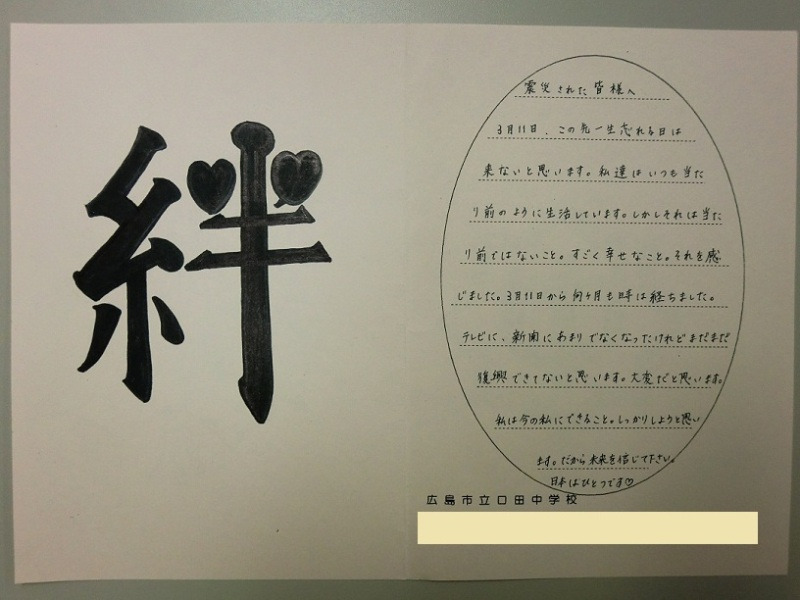 絆
震災された皆様へ
3月11日、この先一生忘れる日は
来ないと思います。私達はいつも当た
り前のように生活しています。しかしそれは当た
り前ではないこと。すごく幸せなこと。それを感
じました。3月11日から何ヶ月も時は経ちました。
テレビに、新聞にあまりでなくなったけれどまだまだ
復興できてないと思います。大変だと思います。
私は今の私にできること。しっかりしようと思い
ます。だから未来を信じて下さい。
日本はひとつです♡
広島市立口田中学校